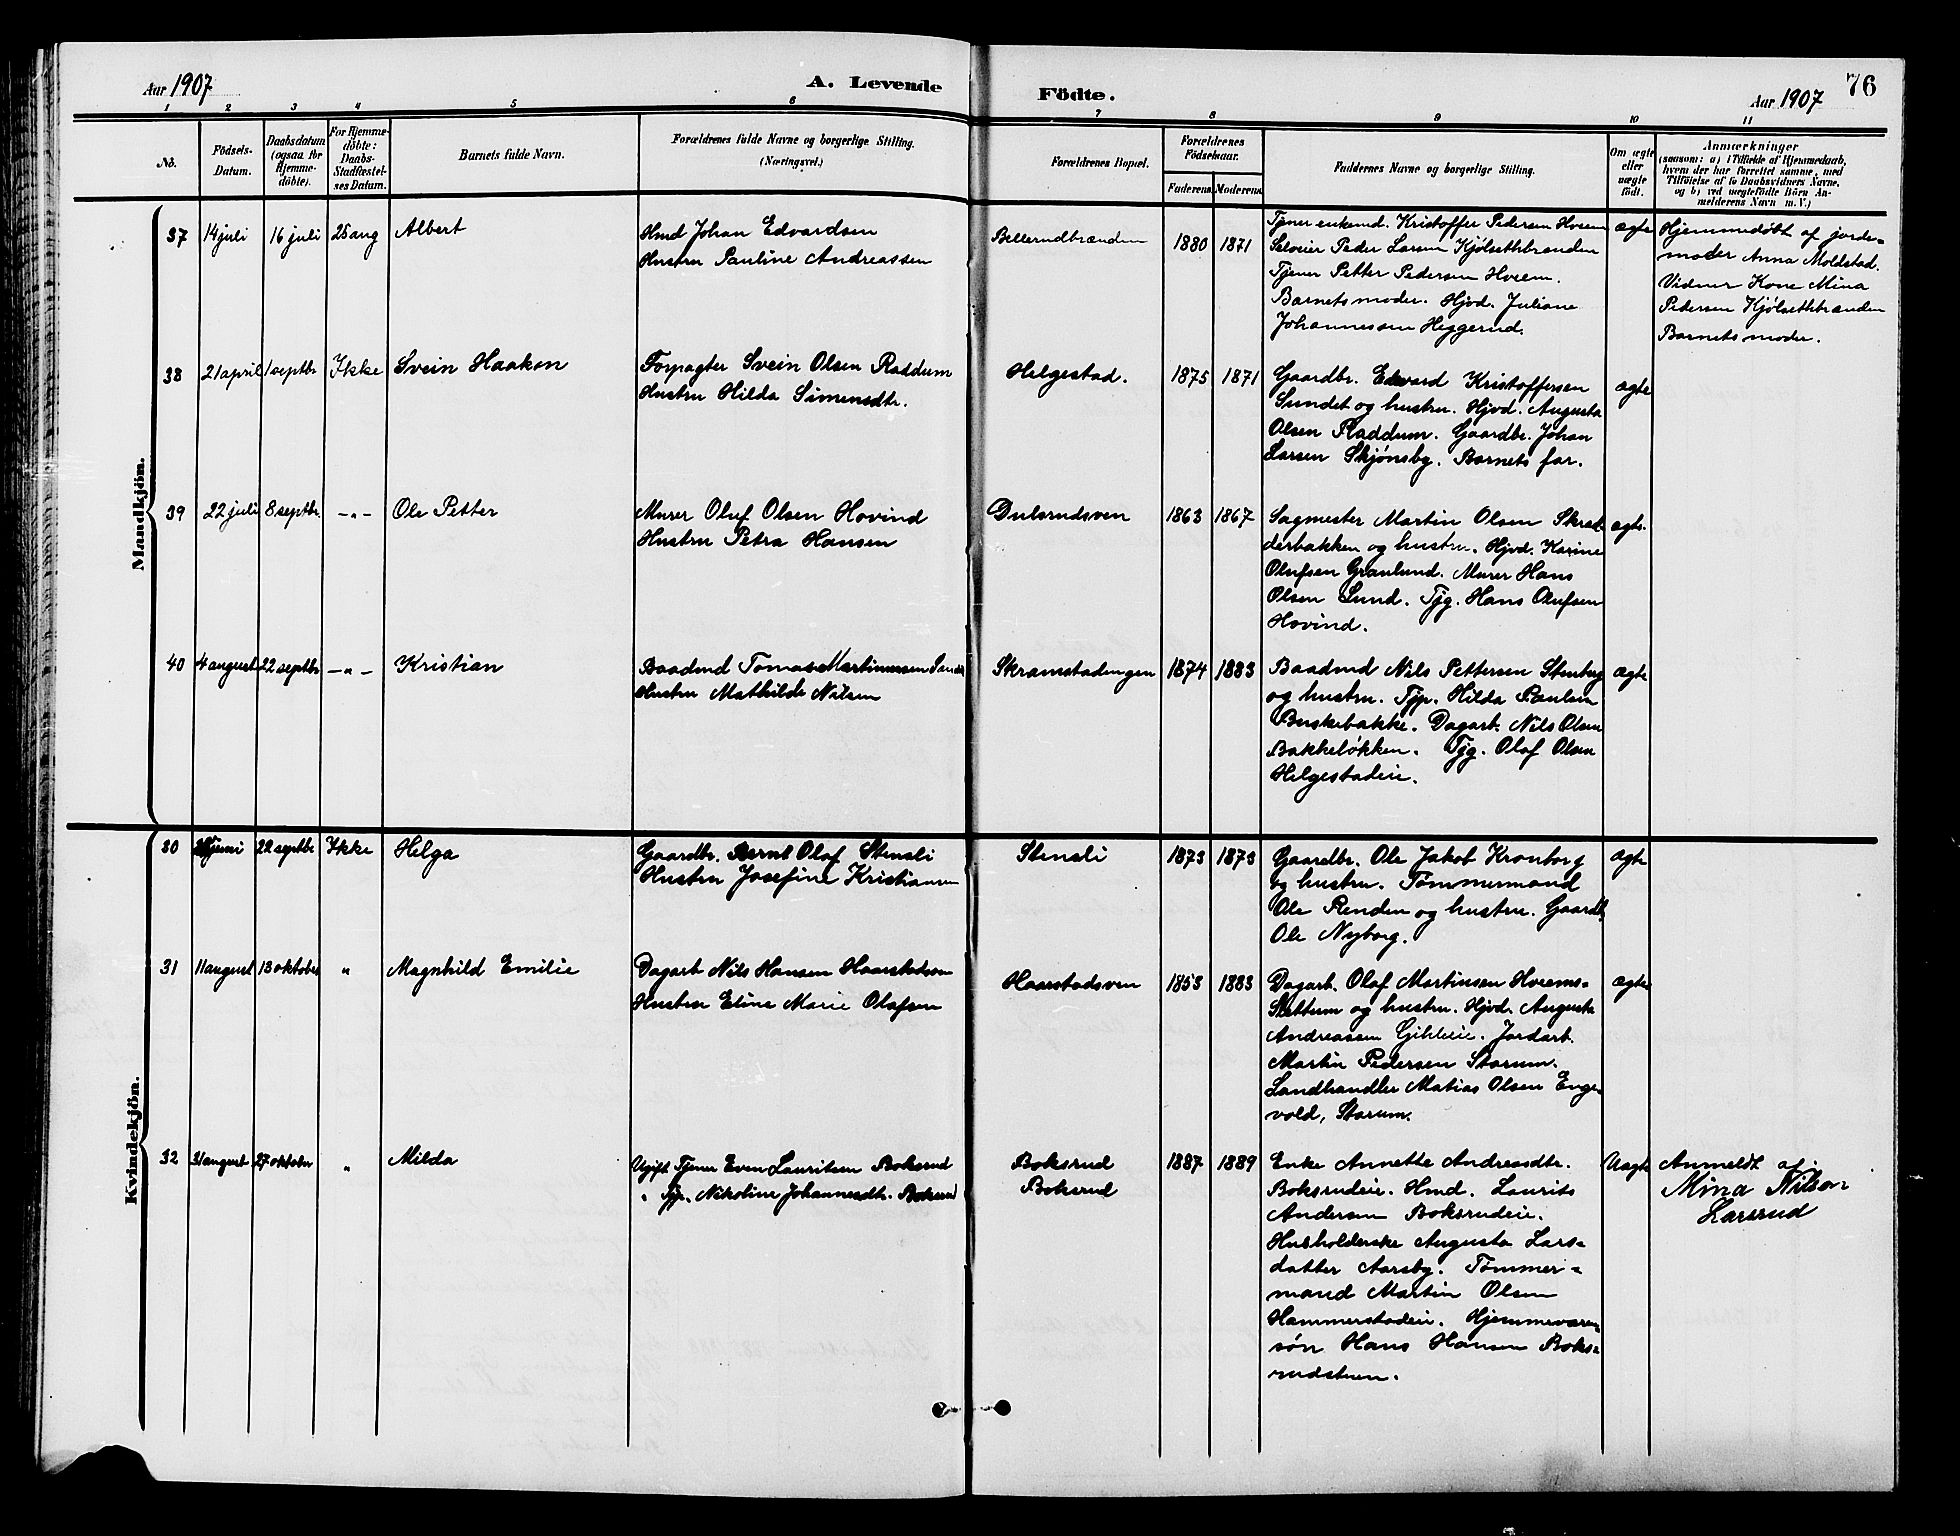 Aar 1907
A. Levende
Födte.
Aar 1907
76
1 2 3 4 5 6 7 8 9 10 11
No.
Födsels-
Datum.
Daabsdatum
(ogsaa for
Hjemme-
döbte).
For Hjemme-
döbte:
Daabs-
Stadfæstel-
ses Datum.
Barnets fulde Navn.
Forældrenes fulde Navne og borgerlige Stilling.
(Næringsvei.)
Forældrenes Bopæl.
Forældrenes
Födselsaar.
Faderens. Moderens.
Faddernes Navne og borgerlige Stilling.
Om ægte
eller
uægte
födt.
Anmærkninger
(saasom: a) i Tilfælde af Hjemmedaab,
hvem der har forrettet samme, med
Tilföielse af to Daabsvidners Navne,
og b) ved uægtefödte Börn An-
melderens Navn m. V.)
Mandkjön.
37
14 juli
16 juli
25 aug
Albert
Hmd Johan Edvardsen
Hustru Pauline Andreassen
Bellerudbrænden
1880
1871
Tjener enkemd. Kristoffer Pedersen Hveem
Selveier Peder Larsen Kjølsethbrænden
Tjener Petter Pedersen Hveem.
Barnets moder. Hjvd. Juliane
Johannessen Heggerud.
ægte
Hjemmedøbt af jorde-
moder Anna Moldstad.
Vidner Kone Mina
Pedersen Kjølsethbrænden
Barnets moder.
38
21 april
1 septbr
Ikke
Svein Haakon
Forpagter Svein Olsen Raddum
Hustru Hilda Simensdtr.
Helgestad.
1875
1871
Gaardbr. Edvard Kristoffersen
Sundet og hustru. Hjvd. Augusta
Olsen Raddum. Gaardbr. Johan
Larsen Skjønsby. Barnets far.
ægte
39
22 juli
8 septbr.
-"-
Ole Petter
Murer Oluf Olsen Hovind
Hustru Petra Hansen
Dulsrudsven
1863
1867
Sagmester Martin Olsen Skræd-
derbakken og hustru. Hjvd. Karine
Olufsen Granlund. Murer Hans
Olsen Lund. Tjg. Hans Olufsen
Hovind.
ægte.
40
4 august
22 septbr
-"-
Kristian
Baadmd Tomas Martinussen
Hustru Mathilde Nilsen
Skramstadengen
1874
1883
Baadmd Nils Pettersen Stenberg
og hustru. Tjp. Hilda Paulsen
Buskebakke. Dagarb. Nils Olsen
Bakkeløkken. Tjg. Olaf Olsen
Helgestadeie.
ægte
Kvindekjön.
30
juni
22 septbr
Ikke
Helga
Gaardbr. Arnt Olaf Stensli
Hustru Josefine Kristiansen
Stensli
1873
1873
Gaardbr. Ole Jakob Kronborg
og hustru. Tømmermand
Ole Renden og hustru. Gaardb.
Ole Nyborg.
ægte
31
11 august
13 oktober
"
Magnhild Emilie
Dagarb Nils Hansen Haarstadsven
Hustru Eline Marie Olafsen
Haarstadsven
1853
1883
Dagarb. Olaf Martinsen Hveems-
Slettum og hustru. Hjvd. Augusta
Andreassen Gihleeie. Jordarb.
Martin Pedersen Starum.
Landhandler Matias Olsen Enge-
vold, Starum.
ægte
32
31 august
27 oktober
"
Milda
Ugift Tjener Even Lauritsen Boksrud
" Tjp. Nikoline Johannesdtr. Boksrud
Boksrud
Boksrud
1887
1889
Enke Annette Andreasdtr.
Boksrudeie. Hmd. Laurits
Andersen Boksrudeie.
Husholderske Augusta Lars-
datter Aarsby. Tømmer-
mand Martin Olsen
Hammerstadeie. Hjemmeværen-
søn Hans Hansen Boks-
rudstuen.
Uægte
Anmeldt af:
Mina Nilsen
Larsrud